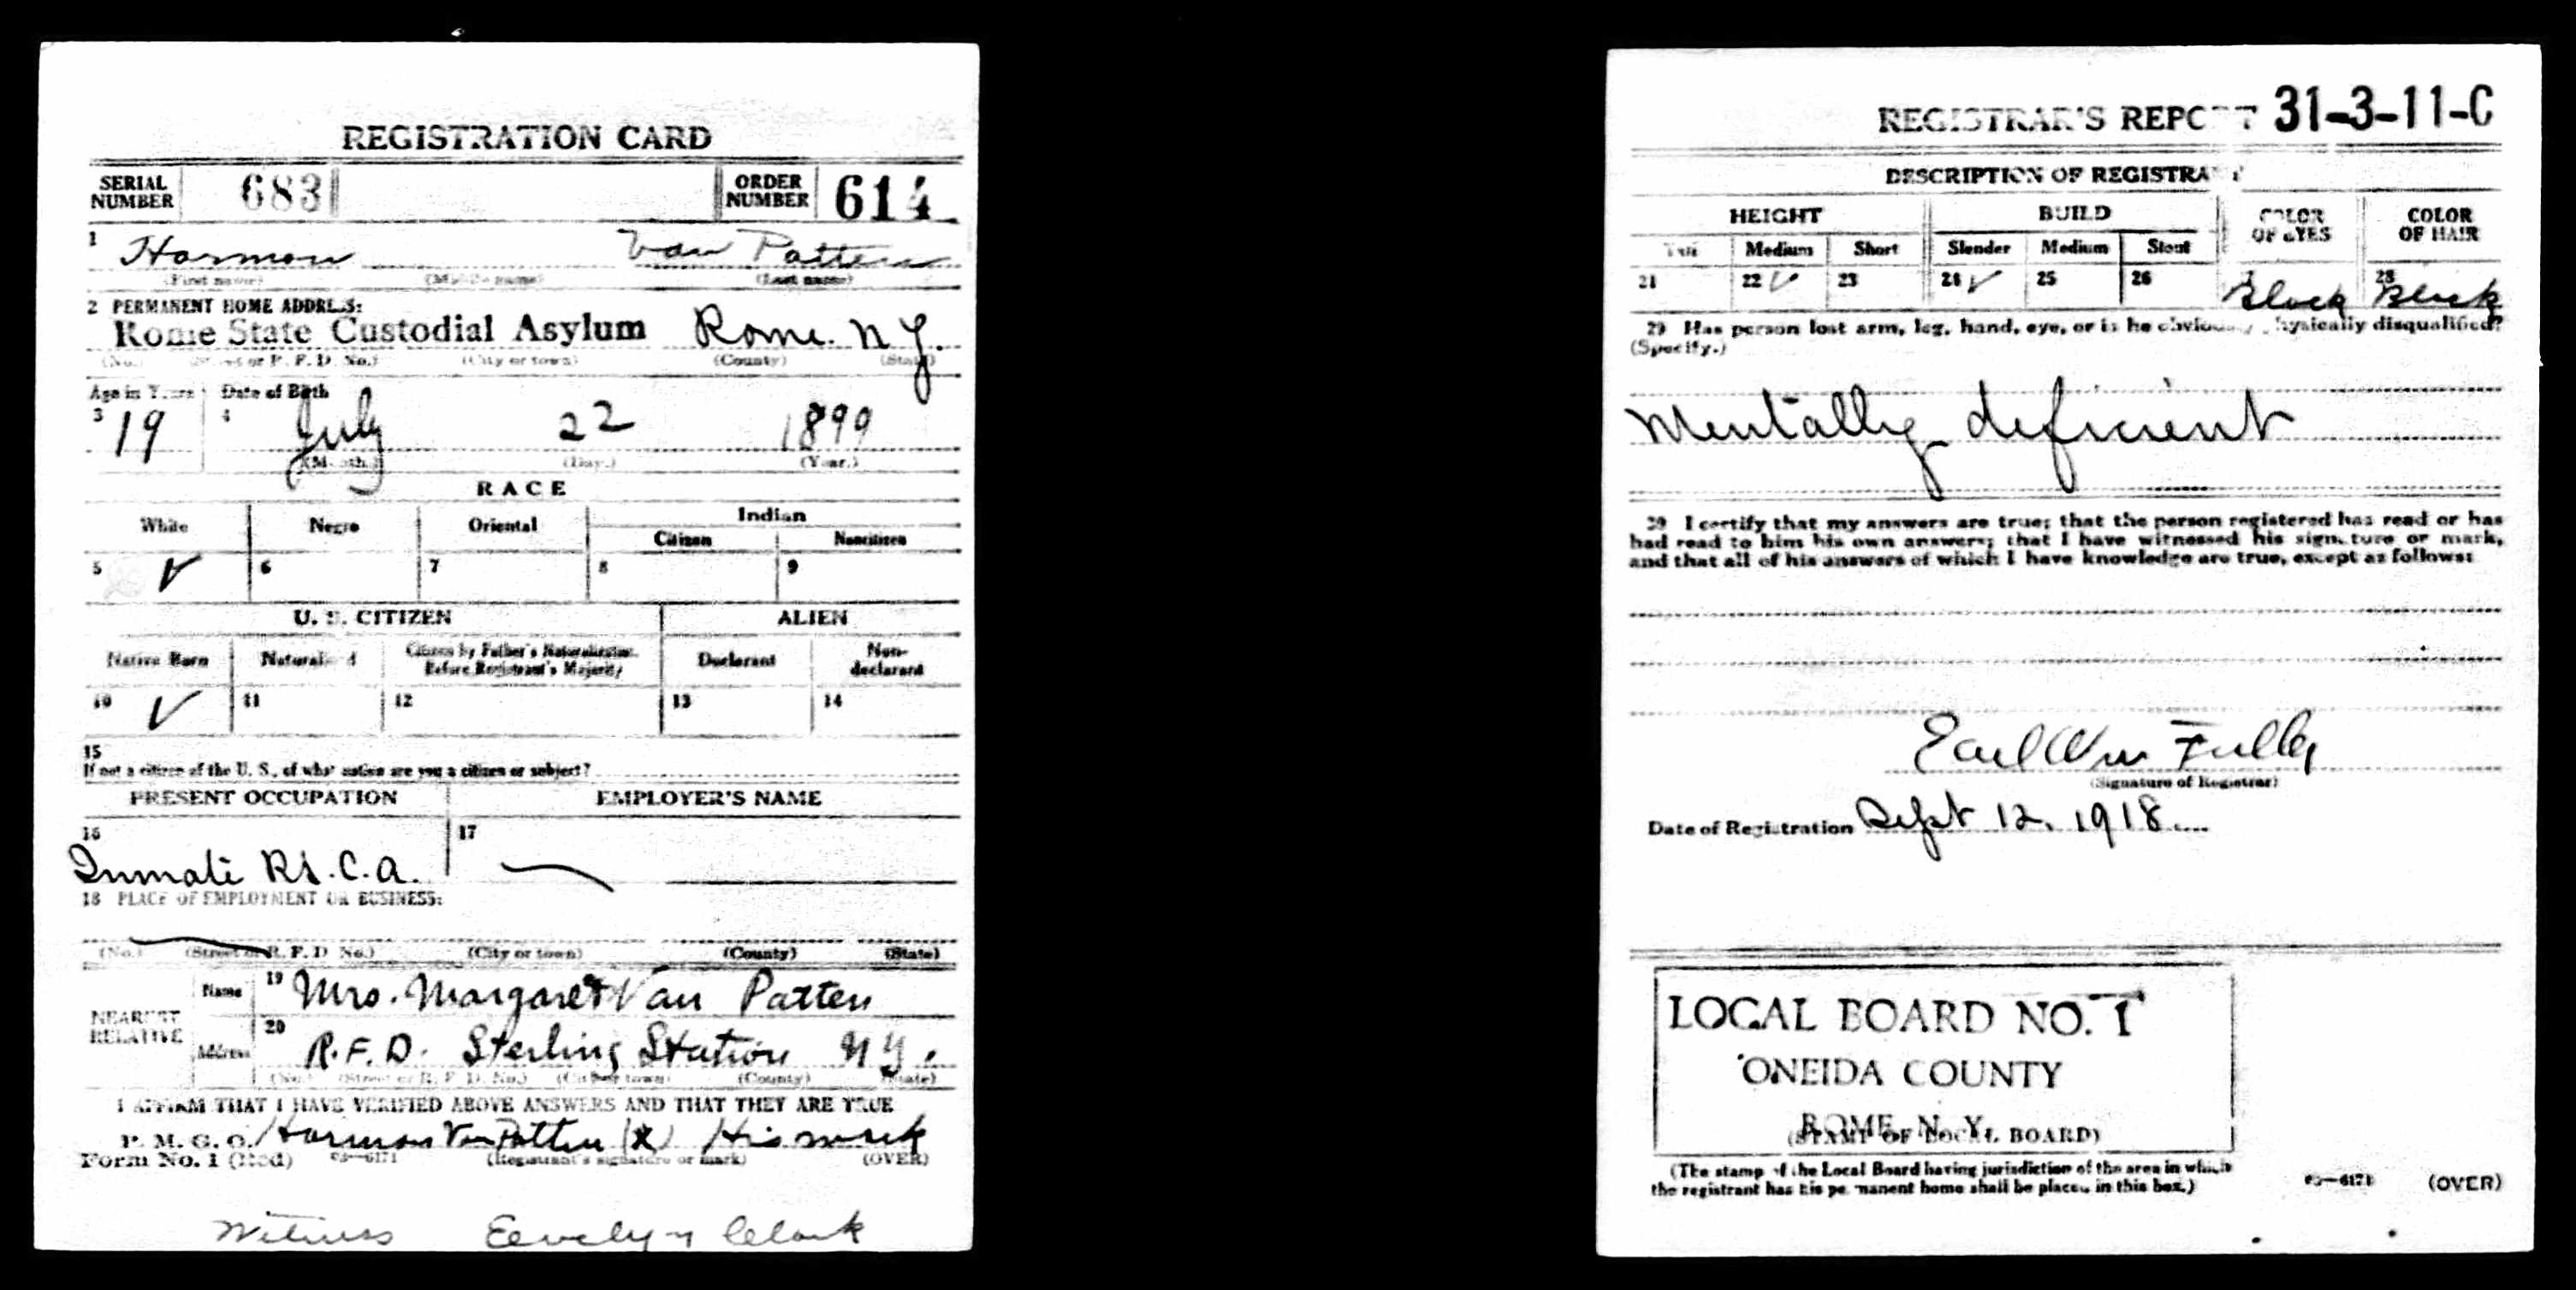 REGISTRATION CARD
SERIAL NUMBER 683 ORDER NUMBER 614
1 Harmon Van Patten
(First name) (Middle name) (Last name)
2 PERMANENT HOME ADDRESS:
Rome State Custodial Asylum Rome. N.Y.
(No.) (Street or R. F. D. No.) (City or town) (County) (State)
Age in Years Date of Birth
3 19 4 July 22 1899
(Month.) (Day.) (Year.)
RACE
White Negro Oriental Indian
Citizen Noncitizen
5 ✓ 6 7 8 9
U. S. CITIZEN ALIEN
Native Born Naturalized Citizen by Father's Naturalization Before Registrant's Majority Declarant Non-declarant
10 ✓ 11 12 13 14
15
If not a citizen of the U. S., of what nation are you a citizen or subject?
PRESENT OCCUPATION EMPLOYER'S NAME
16 17
Inmate R.S.C.A.
18 PLACE OF EMPLOYMENT OR BUSINESS:
(No.) (Street or R. F. D. No.) (City or town) (County) (State)
NEAREST RELATIVE
Name 19 Mrs. Margaret Van Patten
Address 20 R.F.D. Sterling Station N.Y.
(No.) (Street or R. F. D. No.) (City or town) (County) (State)
I AFFIRM THAT I HAVE VERIFIED ABOVE ANSWERS AND THAT THEY ARE TRUE
P. M. G. O. Harmon Van Patten (X) His mark
Form No. 1 (Red) 03—6171 (Registrant's signature or mark) (OVER)
Witness Eevelyn Clark
REGISTRAR'S REPORT 31-3-11-C
DESCRIPTION OF REGISTRANT
HEIGHT BUILD COLOR OF EYES COLOR OF HAIR
Tall Medium Short Slender Medium Stout
21 22 ✓ 23 24 ✓ 25 26 27 Black 28 Black
29 Has person lost arm, leg, hand, eye, or is he obviously physically disqualified?
(Specify.)
Mentally deficient
30 I certify that my answers are true; that the person registered has read or has
had read to him his own answers; that I have witnessed his signature or mark,
and that all of his answers of which I have knowledge are true, except as follows:
Earl Wm Fuller
(Signature of Registrar)
Date of Registration Sept 12. 1918
LOCAL BOARD NO. 1
ONEIDA COUNTY
ROME, N. Y.
(STAMP OF LOCAL BOARD)
(The stamp of the Local Board having jurisdiction of the area in which
the registrant has his permanent home shall be placed in this box.)
03—6171 (OVER)